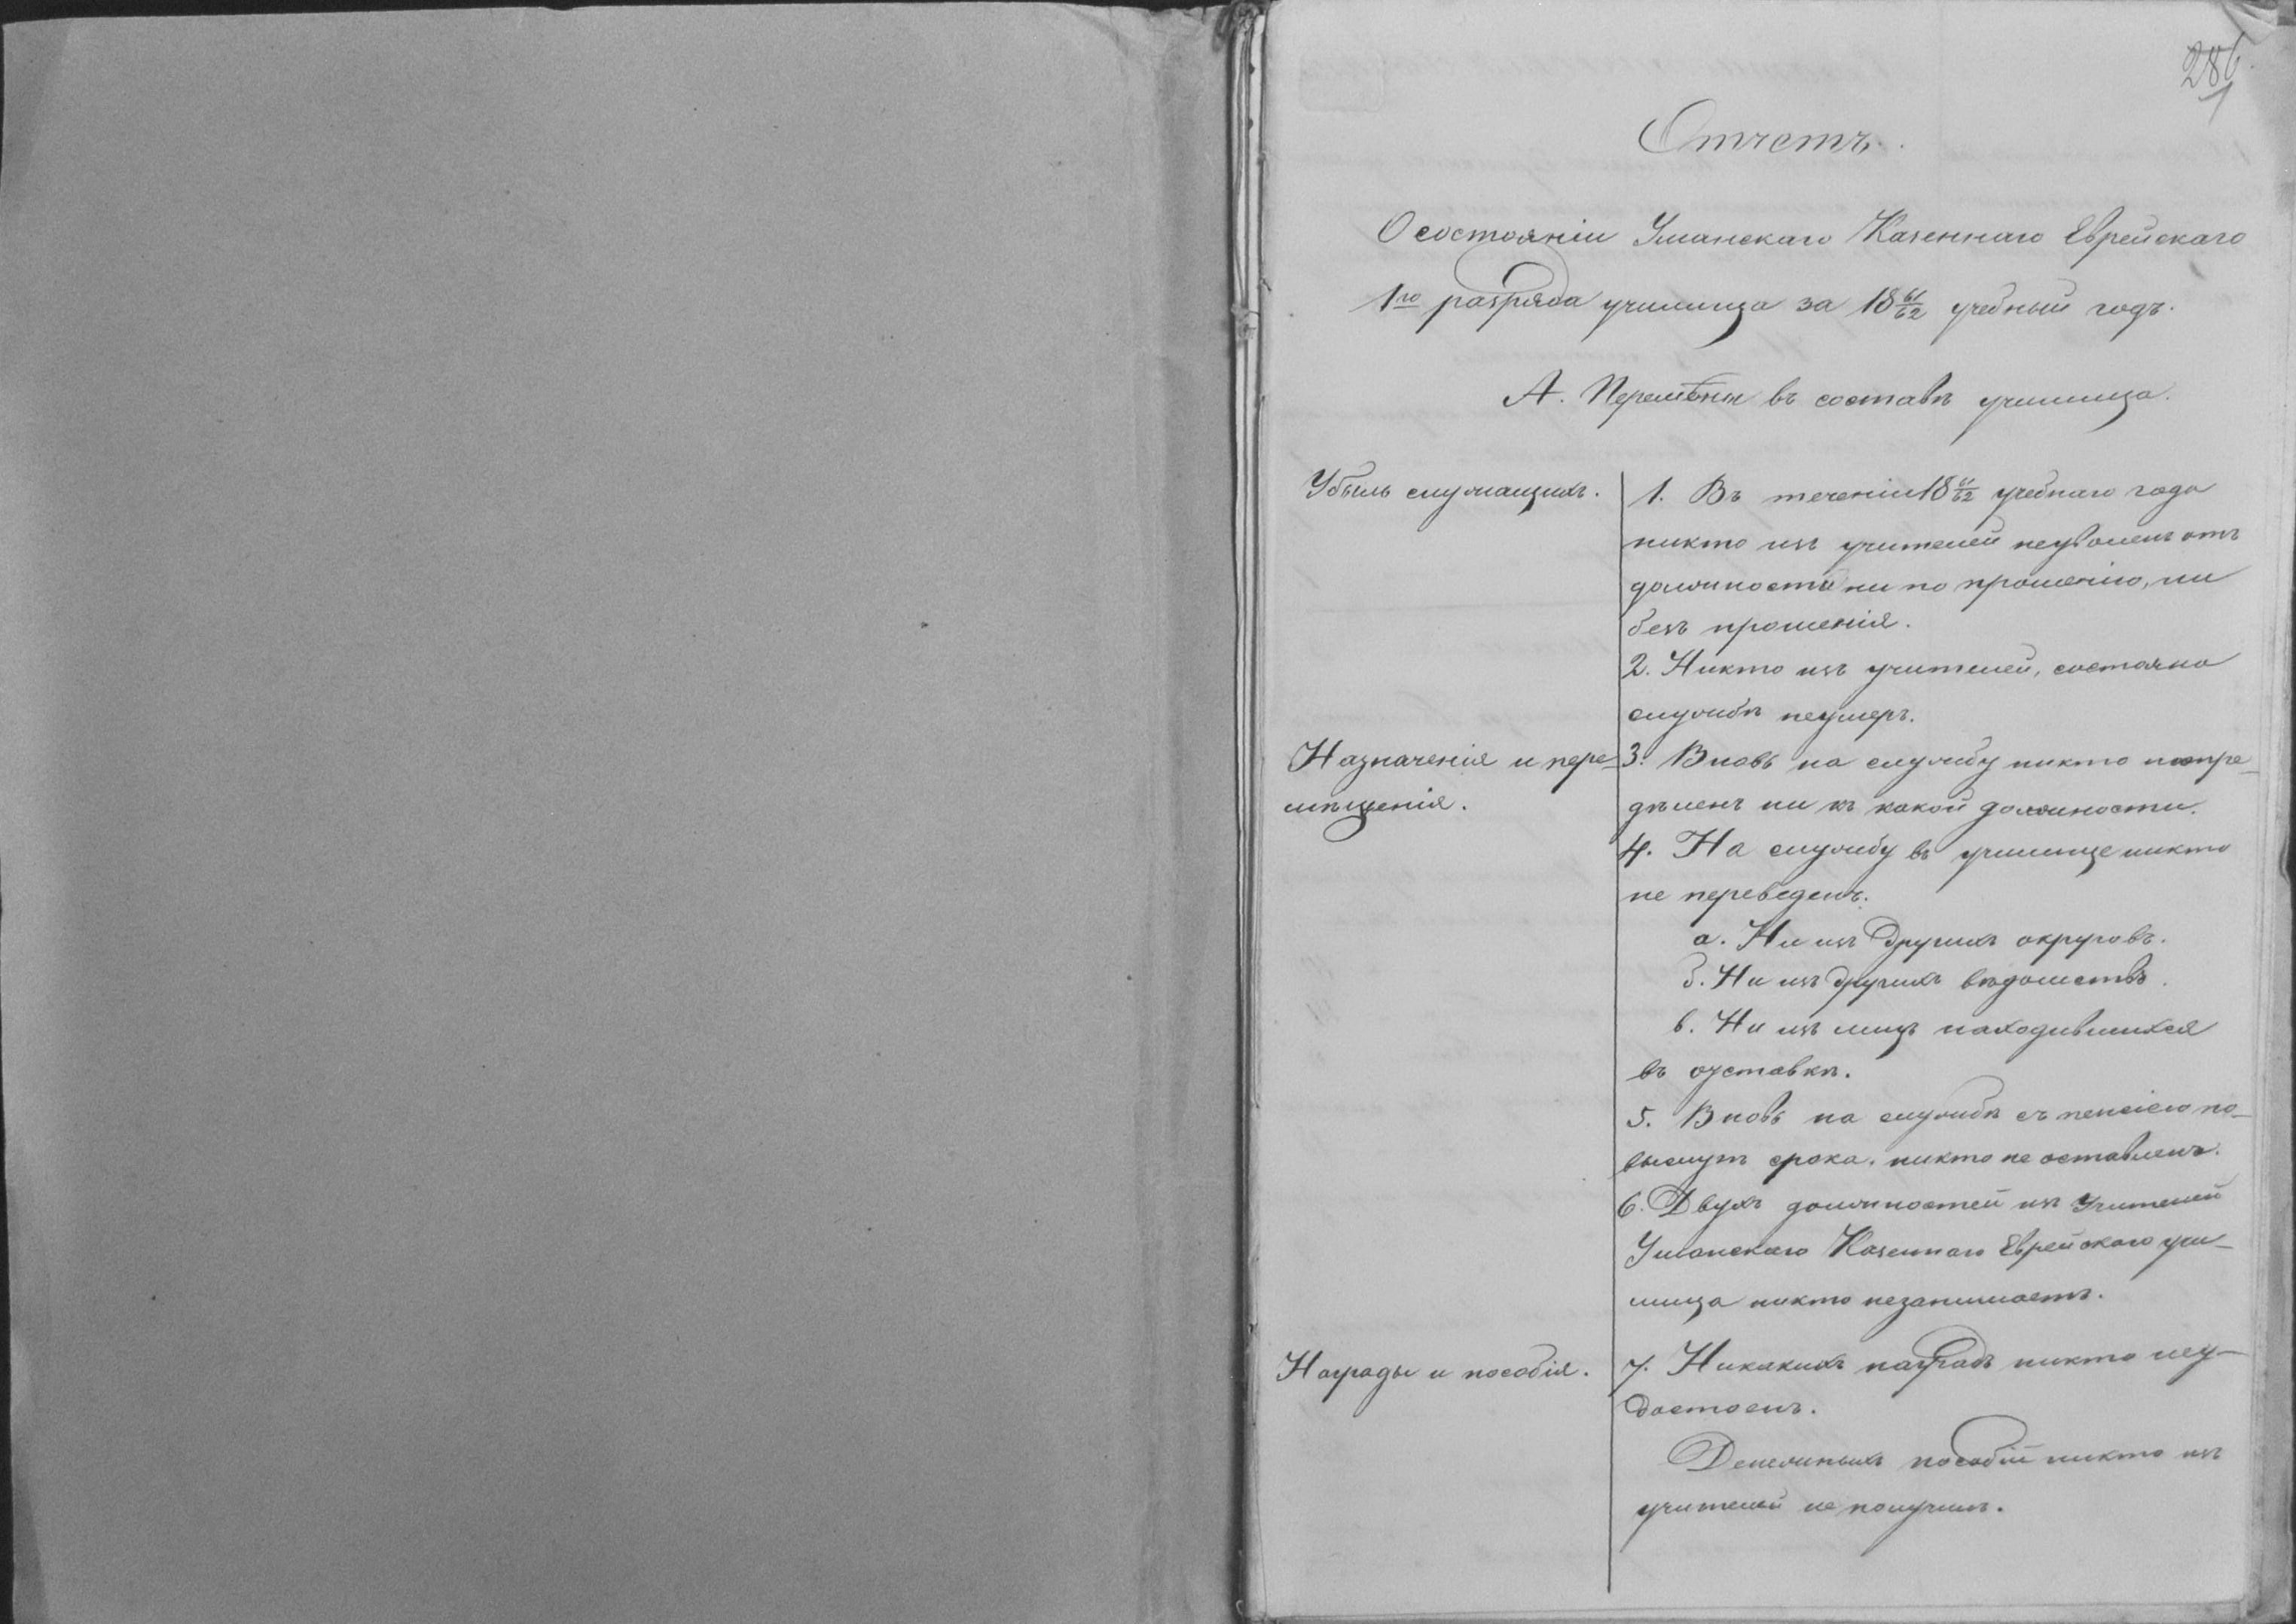 286
1
Отчетъ.
О состояніи Уманскаго Казеннаго Еврейскаго
1го разряда училища за 18 61/62 учебный годъ.
А. Перемѣны въ составѣ училища.
Убыль служащихъ.
1. Въ теченіи 18 61/62 учебнаго года
никто изъ учителей неуволенъ отъ
должности ни по прошенію, ни
безъ прошенія.
2. Никто изъ учителей, состоя на
службѣ неумеръ.
Назначенія и пере-
мѣщенія.
3. Вновь на службу никто неопре-
дѣленъ ни къ какой должности.
4. На службу въ училище никто
не переведенъ.
а. Ни изъ другихъ округовъ.
б. Ни изъ другихъ вѣдомствъ.
в. Ни изъ лицъ находившихся
въ отставкѣ.
5. Вновь на службѣ съ пенсіею по
выслугѣ срока, никто не оставленъ.
6. Двухъ должностей изъ Учителей
Уманскаго Казеннаго Еврейскаго учи-
лища никто незанимаетъ.
Награды и пособія.
7. Никакихъ наградъ никто неу-
достоенъ.
Денежныхъ пособій никто изъ
учителей не получилъ.